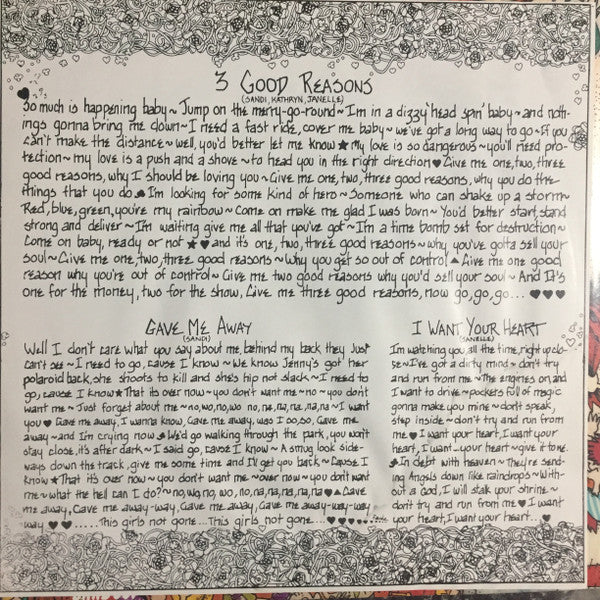 3 GOOD REASONS
(SANDI, KATHRYN, JANELLE)
So much is happening baby~ Jump on the merry-go-round~ I'm in a dizzy 'head spin' baby~ and noth-
ings gonna bring me down~ I need a fast ride, cover me baby~ we've got a long way to go~ If you
can't make the distance~ well, you'd better let me know ★ My love is so dangerous~ you'll need pro-
tection~ my love is a push and a shove~ to head you in the right direction ♥ Give me one, two, three
good reasons, why I should be loving you~ Give me one, two, three good reasons, why you do the
things that you do I'm looking for some kind of hero~ Someone who can shake up a storm~
Red, blue, green, you're my rainbow~ Come on make me glad I was born~ You'd better start, stand
strong and deliver~ I'm waiting give me all that you've got~ I'm a time bomb set for destruction~
Come on baby, ready or not ★ ♥ and it's one, two, three good reasons~ why you've gotta sell your
soul~ Give me one, two, three good reasons~ Why you get so out of control Give me one good
reason why you're out of control~ Give me two good reasons why you'd sell your soul~ And It's
one for the money, two for the show, Give me three good reasons, now go, go, go... ♥♥♥
GAVE ME AWAY
(SANDI)
Well I don't care what you say about me, behind my back they just
can't see~ I need to go, cause I know~ We know Jenny's got her
polaroid back, she shoots to kill and she's hip not slack~ I need to
go, cause I know ★ That its over now~ you don't want me~ no~ you dont
want me~ Just forget about me~ no, wo, no, wo no, na, na, na, na~ I want
you ♥ Gave me away, I wanna know, Gave me away, was I so, so, Gave me
away~ and I'm crying now We'd go walking through the park, you won't
stay close, it's after dark~ I said go, cause I know~ A smug look side-
ways down the track, give me some time and I'll get you back~ Cause I
know ★ That it's over now~ you don't want me~ over now~ you don't want
me~ what the hell can I do?~ no, wo, no, wo, no, na, na, na, na ♥ Gave
me away, Gave me away-way, Gave me away, Gave me away-way-way
way ♥♥.....This girls not gone...This girls not gone...
I WANT YOUR HEART
(JANELLE)
I'm watching you all the time, right up clo-
se~ I've got a dirty mind~ don't try
and run from me~ The engines on, and
I want to drive~ pockets full of magic
gonna make you mine~ don't speak,
step inside~ don't try and run from
me ♥ I want your heart, I want your
heart, I want...your heart~ give it to me.
In debt with heaven~ They're send-
ing Angels down like raindrops~ With-
out a God, I will stalk your shrine~
don't try and run from me ♥ I want
your heart, I want your heart... ♥